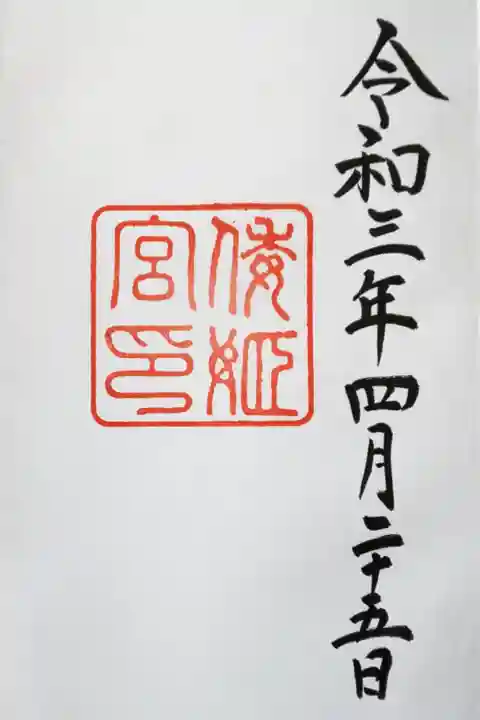 令和三年四月二十五日
倭姫
宮印